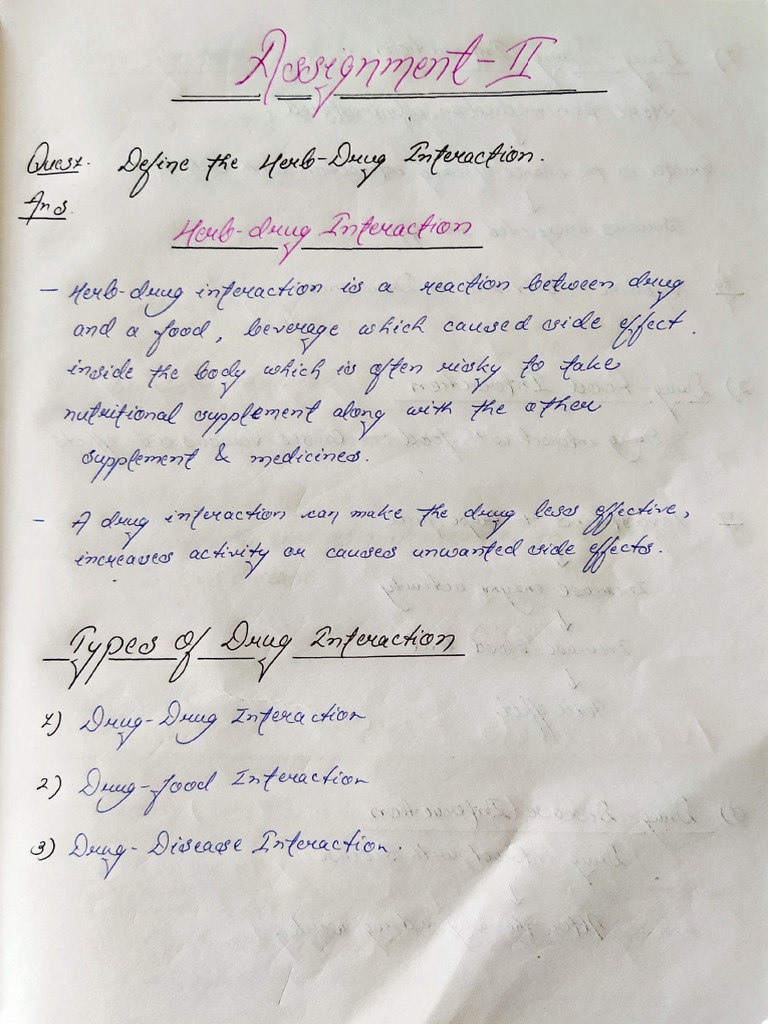 Assignment-II
Quest. Define the Herb-Drug Interaction.
Ans.
Herb-drug Interaction
- Herb-drug interaction is a reaction between drug
and a food, beverage which caused side effect.
inside the body which is often risky to take
nutritional supplement along with the other
supplement & medicines.
- A drug interaction can make the drug less effective,
increases activity or causes unwanted side effects.
Types of Drug Interaction
1) Drug-Drug Interaction
2) Drug-food Interaction
3) Drug-Disease Interaction.